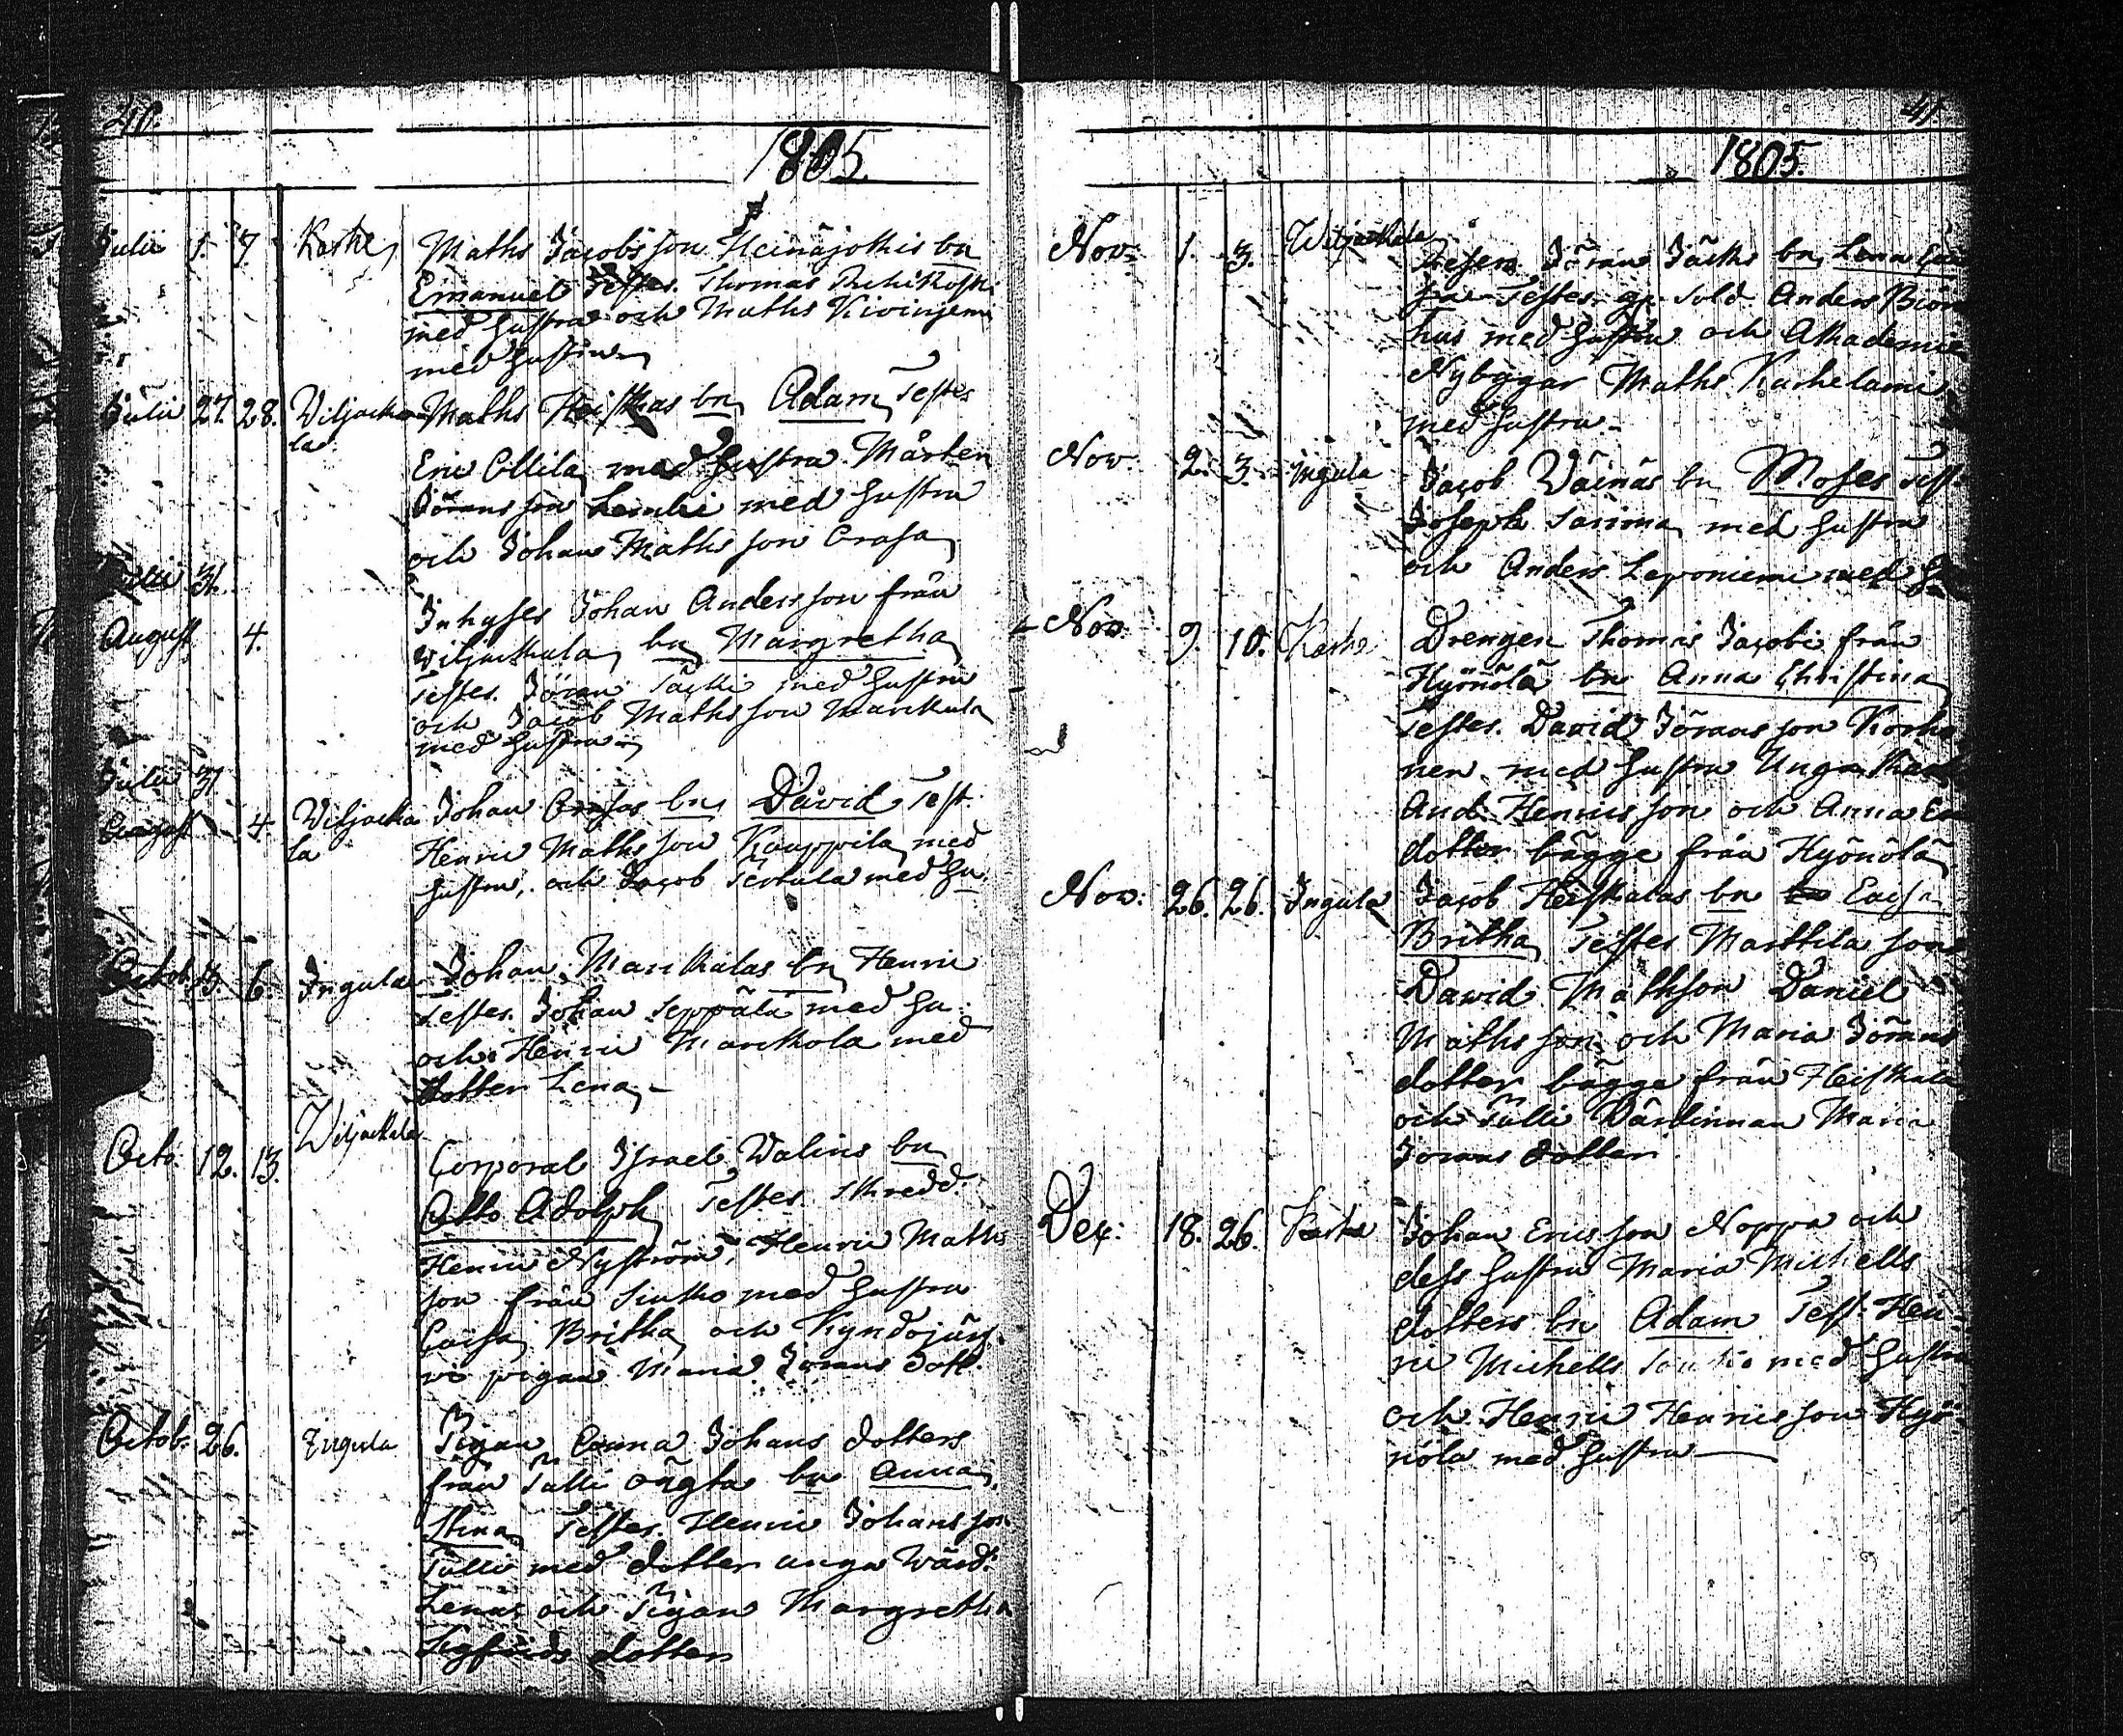 40.
1805
Julii 5. 7. Karhe Maths Jacobsson Heinäjokis bn
Emanuel Testes. Thomas
med hustru och Maths Kiviniemi
med hustru
Julii 27. 28. Viljacka- Maths Heiskas bn Adam Testes
la Eric Ollila med hustru Mårten
Jöransson Lembi med hustru
och Johan Mathsson Orasa
Julii 31. Inhyses Johan Andersson från
August 4. Wiljackala bn Margretha
Testes. Jöran Täcki med hustru
och Jacob Mathsson Marckula
med hustru
Julii 31
August 4 Viljacka Johan Orasas bn David Test.
la Henric Mathsson Kauppila med
hustru, och Jacob Tertula med hu
Octob. 3. 6. Ingula Johan Marckalas bn Henric
Testes. Johan Seppälä med hu:
och Henric Marckola med
dotter Lena
Wiljackala
Octo: 12. 13. Corporal Israel Walins bn
Otto Adolph Testes. Skredd.
Henric Nyström, Henric Maths
son från med hustru
Caisa Britha och Kyndöjär
vi pigan Maria Jörans dott.
Octob. 26. Ingula Pigan Anna Johans dotters
från Tulli oägta bn Anna
Stina Testes. Henric Johansson
Tulli med dotter unga Wärd:
Lenas och Pigan Margretha
Sigfrids dotter
41
1805.
Nov: 1. 3. Wiljackala Jöran Täckis bn Lena
Testes. Sold. Anders Biörn
hus med hustru och Akademie
Nybygar Maths Karhelami
med hustru
Nov 2. 3. Ingula Jacob Wäinäs bn Moses Test.
Joseph Sarima med hustru
och Anders Leponiemi med
Nov. 9. 10. Karhe Drengen Thomas Jacobi från
Hyönölä bn Anna Christina
Testes. David Jöransson Korho
nen med hustru Unga
And. Henricsson och Anna
dotter bägge från Hyönölä
Nov: 26. 26. Ingula Jacob Heiskalas bn Caisa
Britha Testes Marttila son
David Mathson Daniel
Mathsson och Maria Jörans
dotter bägge från Heiskala
och Tulli Värdinnan Maria
Jörans dotter
Dec: 18. 26. Karhe Johan Ericsson Noppa och
dess hustru Maria Michells
dotters bn Adam Test: Hen-
ric Michells med hustru
och Henric Henricsson Hyö-
nölä med hustru